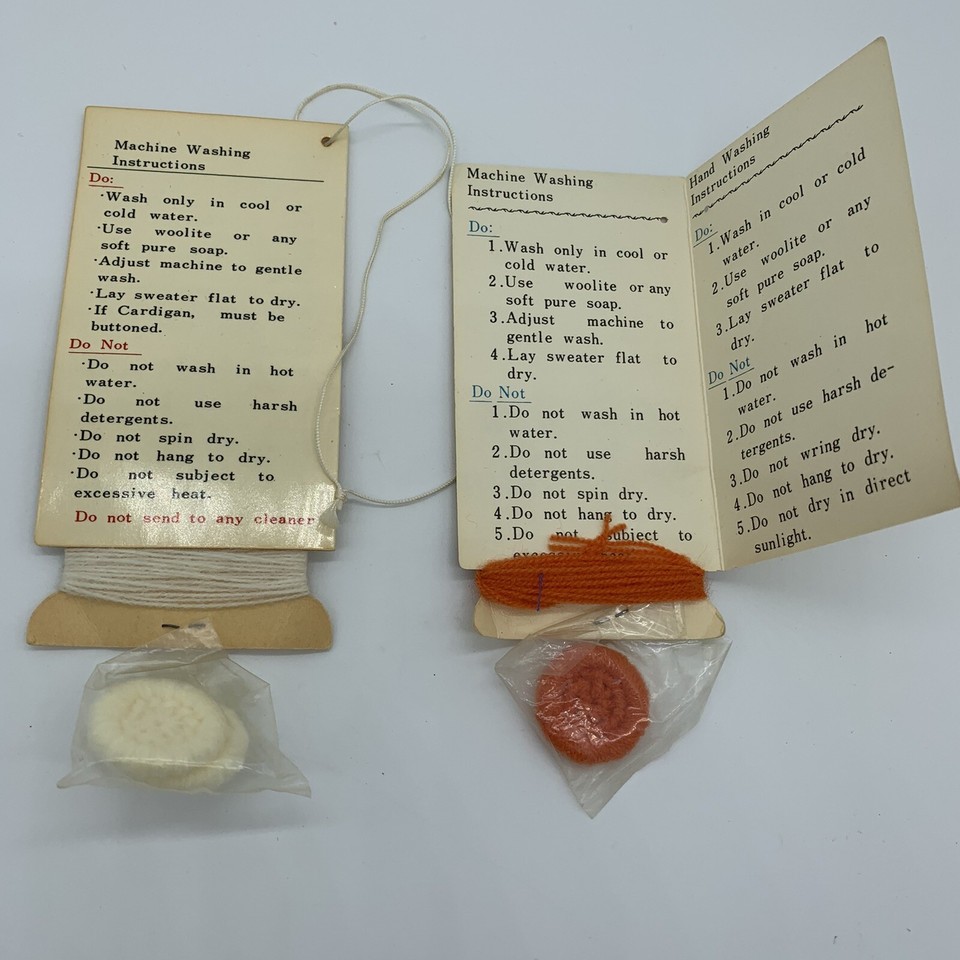 Machine Washing
Instructions
Do:
·Wash only in cool or
cold water.
·Use woolite or any
soft pure soap.
·Adjust machine to gentle
wash.
·Lay sweater flat to dry.
·If Cardigan, must be
buttoned.
Do Not
·Do not wash in hot
water.
·Do not use harsh
detergents.
·Do not spin dry.
·Do not hang to dry.
·Do not subject to
excessive heat.
Do not send to any cleaner
Machine Washing
Instructions
Do:
1.Wash only in cool or
cold water.
2.Use woolite or any
soft pure soap.
3.Adjust machine to
gentle wash.
4.Lay sweater flat to
dry.
Do Not
1.Do not wash in hot
water.
2.Do not use harsh
detergents.
3.Do not spin dry.
4.Do not hang to dry.
5.Do not subject to
excessive heat.
Hand Washing
Instructions
Do:
1.Wash in cool or cold
water.
2.Use woolite or any
soft pure soap.
3.Lay sweater flat to
dry.
Do Not
1.Do not wash in hot
water.
2.Do not use harsh de-
tergents.
3.Do not wring dry.
4.Do not hang to dry.
5.Do not dry in direct
sunlight.